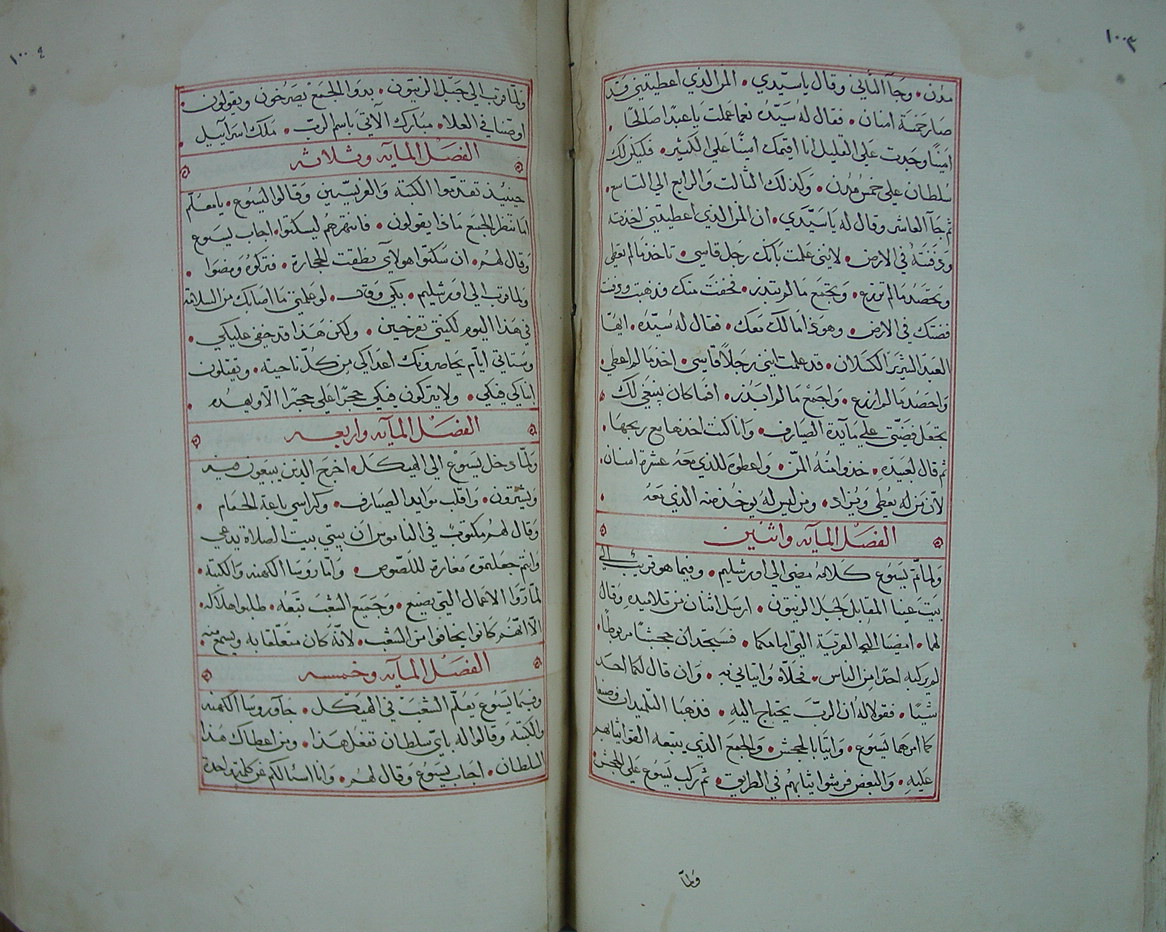 ١٠٠٣
مدن • وجآ الثاني وقال ياسيدي • المنا الذي اعطيتني قد
صار خمسة امنان • فقال له سيّده نعما عملت يا عبدًا صالحًا •
امينًا وجدت على القليل انا اقيمك امينًا على الكثير • فليكن لك
سلطان على خمس مدن • وكذلك الثالث والرابع الى التاسع •
ثم جآ العاشر وقال له ياسيّدي • ان المنا الذي اعطيتني اخذته
ودفنته في الارض • لاينّي علمت بانك رجل قاسي • تاخذ ما لم تعطي
وتحصد ما لم تزرع • وتجمع ما لم تبذر • فخفت منك فذهبت ودفنت
فضتك في الارض • وهوذا مالك معك • فقال له سيّده • ايّها
العبد الشرير الكسلان • قد علمت انني رجلًا قاسي • اخذ ما لم اعطي •
واحصد ما لم ازرع • واجمع ما لم ابذر • افما كان ينبغي لك •
تجعل فضتي على مايدة الصيارف • وانا كنت اخذها مع ربحها •
ثم قال لعبيده • خذوا منه المنّ • واعطوه للذي معه عشرة امنان •
لانّ من له يعطى ويزاد • ومن ليس له يوخذ منه الذي معه •
الفصل المايه واثنين
ولما تم يسوع كلامه مضى الى اورشليم • وفيما هو قريب الى
بيت عنيا المقابل لجبل الزيتون • ارسل اثنان من تلاميذه وقال
لهما • امضيا الى القرية التي امامكما • فستجدان جحشًا مربوطًا •
لم يركبه احدًا من الناس • فحلّاه وايتياني به • وان قال لكما احد
شيًا • فقولا له ان الربّ يحتاج اليه • فذهبا التلميذان وصنعا
كما امرهما يسوع • واتيا بالجحش • والجمع الذي يتبعه القوا ثيابهم
عليه • والبعض فرشوا ثيابهم في الطريق • ثم ركب يسوع على الجحش •
ولمّا
١٠٠٤
ولما قرب الى جبل الزيتون • بدوا الجمع يصرخون ويقولون
اوصنا في العلا • مبارك الآتي باسم الربّ • ملك اسراييل •
الفصل المايه وثلاثه
حينيذ تقدّموا الكتبة والفريسيين وقالوا ليسوع • يا معلّم
اما تنظر الجمع ماذا يقولون • فانتهرهم ليسكتوا • اجاب يسوع
وقال لهم • ان سكتوا هولآي نطقت الحجارة • فتركوه ومضوا •
ولما قرب الى اورشليم • بكي وقال • لو علمتي ما اصابك من السلامة
في هذا اليوم لكنتي تفرحين • ولكن هذا قد خفي عليكي •
وستاتي ايّام يحاصرونك اعداكي من كلّ ناحية • ويقتلون
ابناكي فيكي • ولا يتركون فيكي حجرًا على حجرًا الّا ويهدم •
الفصل المايه واربعه
ولمّا دخل يسوع الى الهيكل • اخرج الذين يبيعون فيه
ويشترون • واقلب موايد الصيارف • وكراسي باعة الحمام •
وقال لهم مكتوب في الناموس ان بيتي بيت الصلاة يدعي
وانتم جعلتموه مغارة للصوص • وامّا روسا الكهنه والكتبة •
لمّا راوا الاعمال التي يصنع • وجميع الشعب تتبعه • طلبوا هلاكه
الّا انّهم كانوا يخافوا من الشعب • لانّه كان متعلّقا به ويسمع منه
الفصل المايه وخمسه
وفيما يسوع يعلّم الشعب في الهيكل • جآوا روسا الكهنه
والكتبة وقالوا له باي سلطان تفعل هذا • ومن اعطاك هذا
السلطان • اجاب يسوع وقال لهم • وانا اسالكم عن كلمة واحدة